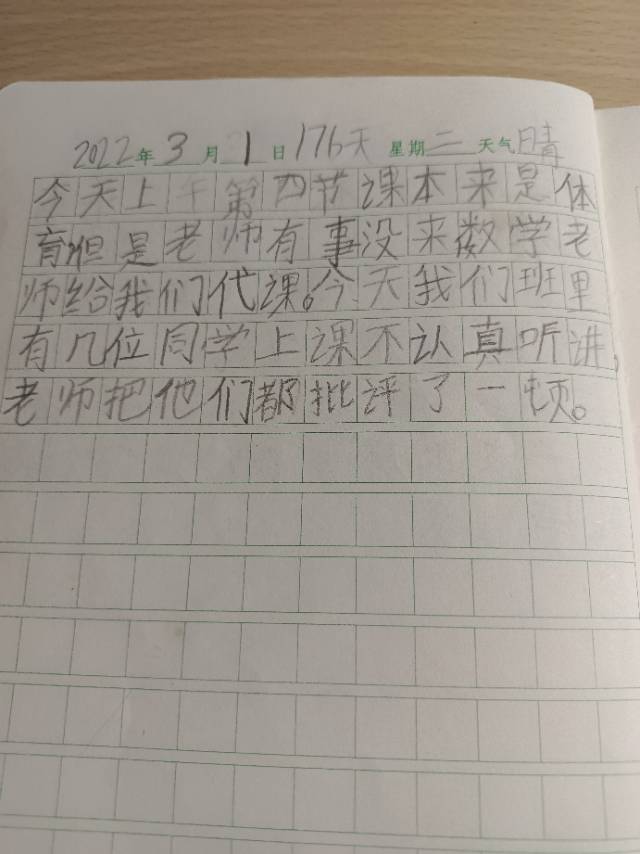 2022年3月1日176天 星期二 天气晴
今天上午第四节课本来是体
育但是老师有事没来数学老
师给我们代课。今天我们班里
有几位同学上课不认真听讲,
老师把他们都批评了一顿。